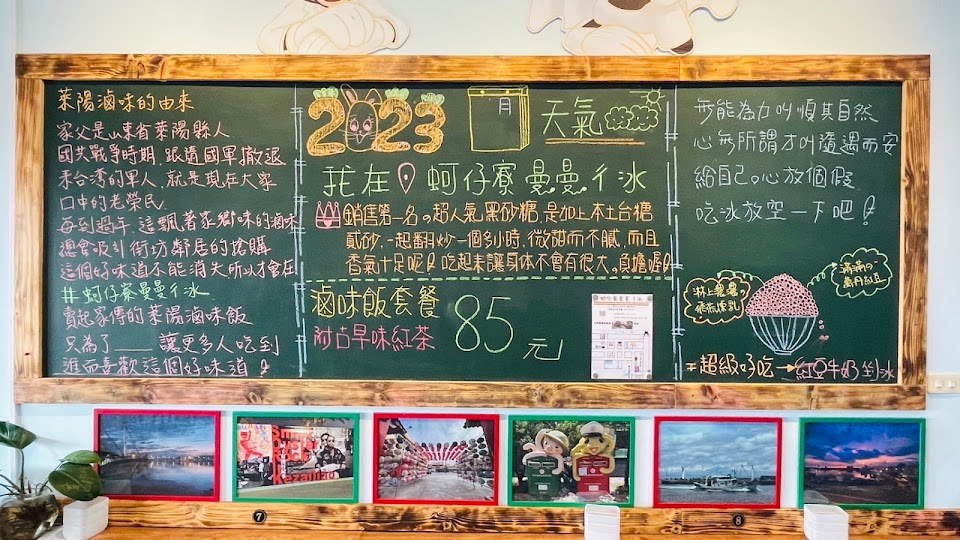 萊陽滷味的由來
家父是山東省萊陽縣人
國共戰爭時期，跟隨國軍撤退
來台灣的軍人，就是現在大家
口中的老榮民
每到過年，這飄著家鄉味的滷味
總會吸引街坊鄰居的搶購
這個好味道不能消失所以才會在
#蚵仔寮曼曼彳冰
賣起家傳的萊陽滷味飯
只為了——讓更多人吃到
進而喜歡這個好味道!
2023
月
天氣
我在 蚵仔寮曼曼彳冰
銷售第一名。超人氣黑砂糖，是加上本土台糖
貳砂，一起翻炒一個多小時，微甜而不膩，而且
香氣十足呢!吃起來讓身体不會有很大。負擔喔!
滷味飯套餐 85元
附古早味紅茶
無能為力叫順其自然
心無所謂才叫隨遇而安
給自己。心放個假
吃冰放空一下吧!
淋上濃濃
滿滿の
萬丹紅豆
=超級好吃→紅豆牛奶剉冰
Kezailiao
7
8